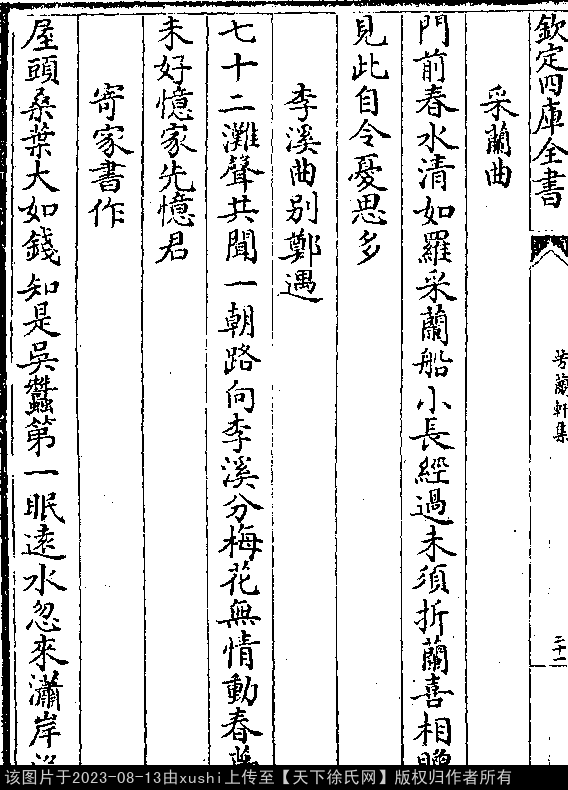 欽定四庫全書
芳蘭軒集
二十一
采蘭曲
門前春水清如羅采蘭船小長經過未須折蘭喜相
見此自令憂思多
李溪曲别鄭遇
七十二灘聲共聞一朝路向李溪分梅花無情動春
未好憶家先憶君
寄家書作
屋頭桑葉大如錢知是吳蠶第一眠逺水忽來瀟岸
该图片于2023-08-13由xushi上传至【天下徐氏网】版权归作者所有